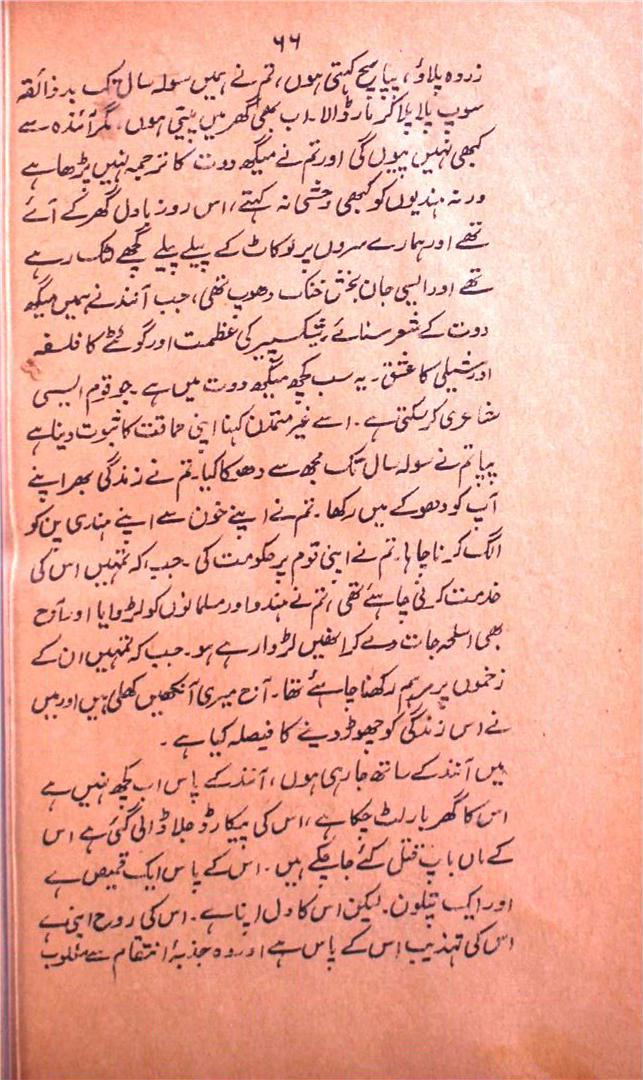 ۶۶
زردہ پلاؤ، پپا سچ کہتی ہوں، تم نے ہمیں سولہ سال تک بدذائقہ
سوپ پلا پلا کر مار ڈالا۔ اب بھی گھر میں پیتی ہوں، مگر آئندہ سے
کبھی نہیں پیوں گی اور تم نے میگھ دوت کا ترجمہ نہیں پڑھا ہے
ورنہ ہندیوں کو کبھی وحشی نہ کہتے، اس روز بادل گھر کے آئے
تھے اور ہمارے سروں پر لوکاٹ کے پیلے پیلے گچھے لٹک رہے
تھے اور ایسی جان بخش خنک دھوپ تھی، جب آنند نے ہمیں میگھ
دوت کے شعر سنائے شیکسپیر کی عظمت اور گوئٹے کا فلسفہ
اور شیلی کا عشق۔ یہ سب کچھ میگھ دوت میں ہے۔ جو قوم ایسی
شاعری کر سکتی ہے۔ اسے غیر متمدن کہنا اپنی حماقت کا ثبوت دینا ہے
پپا تم نے سولہ سال تک مجھ سے دھوکا کیا۔ تم نے زندگی بھر اپنے
آپ کو دھوکے میں رکھا۔ تم نے اپنے خون سے اپنے ہندی پن کو
الگ کرنا چاہا۔ تم نے اپنی قوم پر حکومت کی۔ جب کہ تمہیں اس کی
خدمت کرنی چاہئے تھی، تم نے ہندو اور مسلمانوں کو لڑوایا اور آج
بھی اسلحہ جات دے کر انھیں لڑوا رہے ہو۔ جب کہ تمہیں ان کے
زخموں پر مرہم رکھنا چاہئے تھا۔ آج میری آنکھیں کھلی ہیں اور میں
نے اس زندگی کو چھوڑ دینے کا فیصلہ کیا ہے۔
میں آنند کے ساتھ جا رہی ہوں، آنند کے پاس اب کچھ نہیں ہے
اس کا گھر بار لٹ چکا ہے، اس کی پیکارڈ جلا ڈالی گئی ہے اس
کے ماں باپ قتل کئے جا چکے ہیں۔ اس کے پاس ایک قمیص ہے
اور ایک پتلون۔ لیکن اس کا دل اپنا ہے۔ اس کی روح اپنی ہے
اس کی تہذیب اس کے پاس ہے اور وہ جذبۂ انتقام سے مغلوب